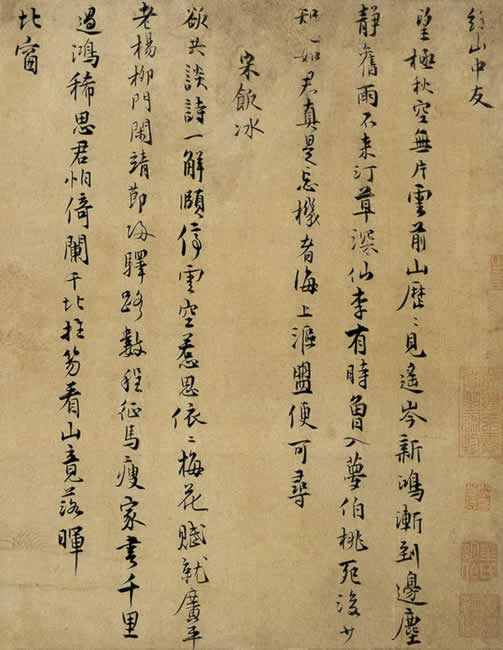 山中友
望極秋空無片雲前山歷〻見遙岑新鴻漸到邊塵
靜舊雨不來汀草深仙李有時曾入夢伯桃死後少
知心如君真是忘機者海上漚盟便可尋
宋飯冰
欲共談詩一解頤停雲空惹思依〻梅花賦就廣平
老楊柳門閑靖節歸驛路數程征馬瘦家書千里
過鴻稀思君怕倚闌干北拄笏看山竟落暉
北窗